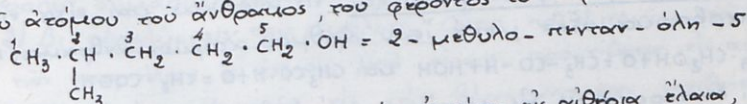 ἀτόμου τοῦ ἄνθρακος, τοῦ φέροντος
1 2 3 4 5
CH₃ · CH · CH₂ · CH₂ · CH₂ · OH = 2 - μεθυλο - πενταν - όλη - 5
|
CH₃
αἰθέρια ἔλαια,